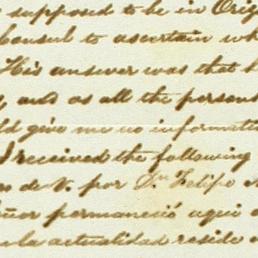 supposed to be in Orig
Consul to ascertain wh
His answer was that h
and as all the persons
ld give me no informatio
I received the following
de V. por Dn. Felipe
ñor permaneció aqui
la actualidad reside